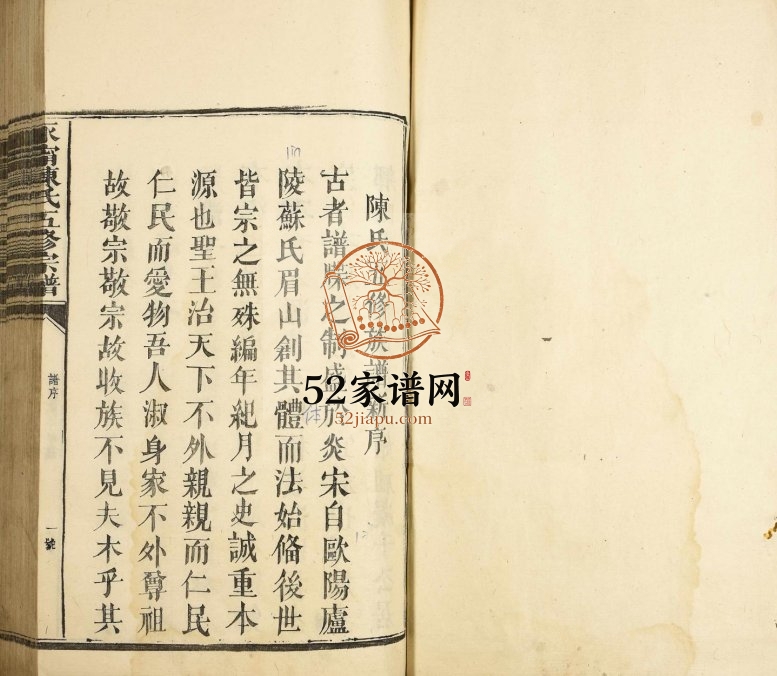 陳氏五修族譜新序
古者譜牒之制盛於炎宋自歐陽廬
陵蘇氏眉山創其體而法始備後世
皆宗之無殊編年紀月之史誠重本
源也聖王治天下不外親親而仁民
仁民而愛物吾人淑身家不外尊祖
故敬宗敬宗故收族不見夫木乎其
陳氏五修宗譜
譜序
一號
52家谱网
52jiapu.com
体